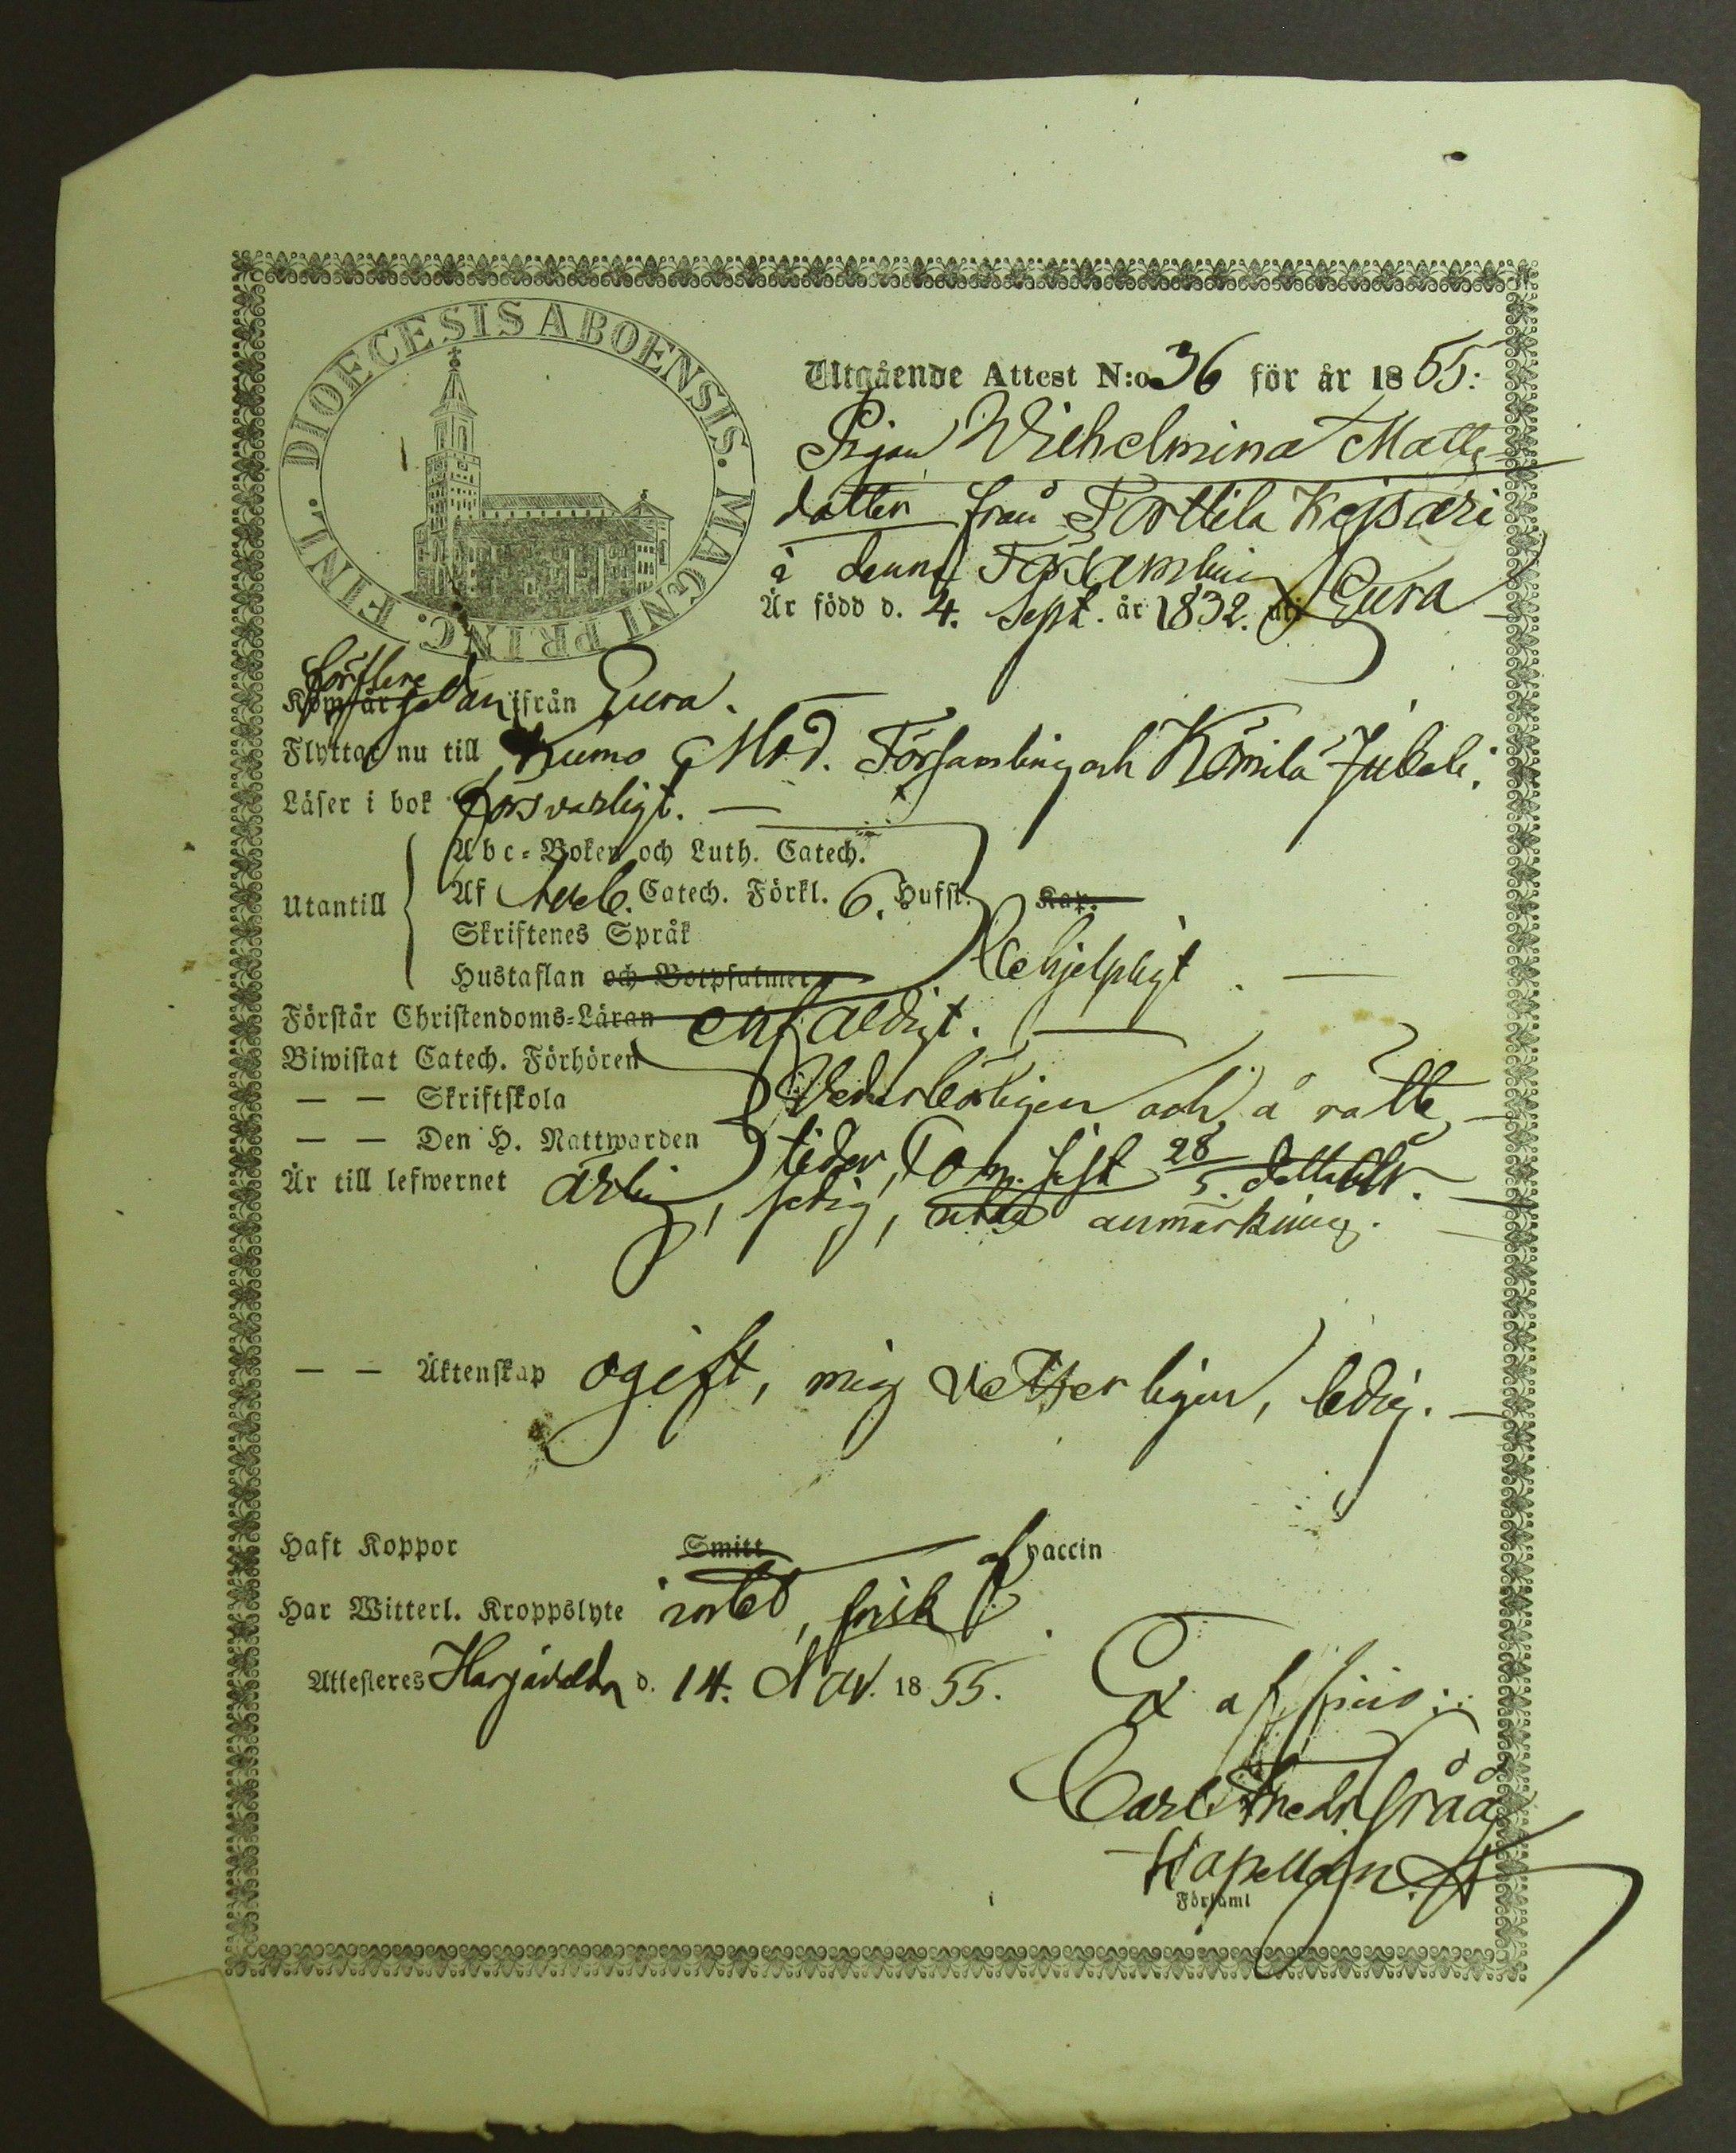 DIOECESIS ABOENSIS. MAGNI PRINC. FINL.
Utgående Attest N:o 36 för år 1855.
Pigan Wilhelmina Matts
dotter från Torttila Kejsari
i denna Församling
Är född d. 4. Sept. år 1832. uti Eura
Kom år sedan ifrån Eura.
Flyttar nu till Kumo Mod. Församling och Kömilä Jukola.
Läser i bok försvarligt.
Utantill
Abc-Boken och Luth. Catech.
Af Catech. Förkl. 6. Hufst. Kap.
Skriftenes Språk
Hustaflan och Botpsalmer behjelpligt
Förstår Christendoms-Läran enfaldigt.
Biwistat Catech. Förhören
— — Skriftskola Vederbörligen och å rätta
— — Den H. Nattwarden tider, Com. sist 28/5. detta år.
Är till lefwernet ärlig, sedig, utan anmärkning.
— — Äktenskap ogift, mig vetterligen, ledig.
Haft Koppor Smitt af vaccin
Har Witterl. Kroppslyte intet, frisk
Attesteres Harjavalda d. 14. Nov. 1855.
Ex officio:
Carl Fredr. Gråå
Kapellan.
i Församl